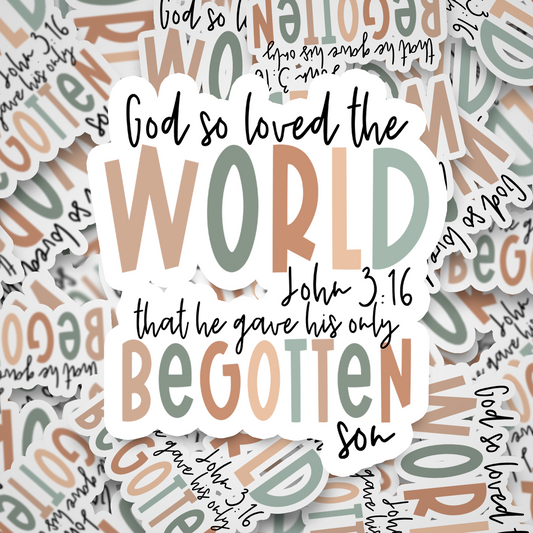 God so loved the
WORLD
John 3:16
that he gave his only
BEGOTTEN
son